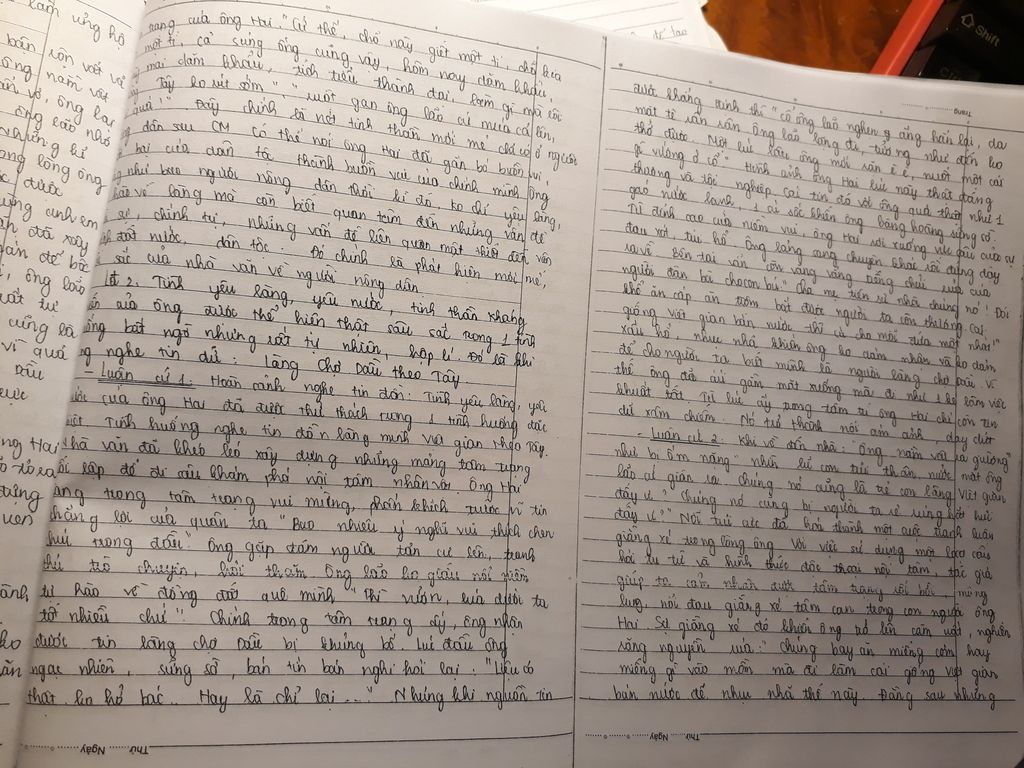 cả làng ủng hộ
bồn rôn vớt vả
ông nằm vật
ông lão nhớ
những kỉ
ong lòng ông
được
cùng anh em
đã xây
, ông lão
rất tự
cũng là
vì quá
Dầu
rang của ông Hai. "Cứ thế, chỗ này giết một tí, chỗ kia
một tí, cả súng ống cũng vậy, hôm nay dăm khẩu,
mai dăm khẩu, tích tiểu thành đại, làm gì mà rồi
Tây ko rút sớm" "ruột gan ông lão cứ múa cả lên,
quá!" Đây chính là nét tinh thần mới mẻ chỉ có ở người
dân sau CM. Có thể nói ông Hai đã gắn bó buồn vui,
của dân tộc thành buồn vui của chính mình. Ông
như bao người nông dân thời kì đó, ko chỉ yêu làng,
hào về làng mà còn biết quan tâm đến những vấn đề
sự, chính trị, những vấn đề liên quan mật thiết đến vận
đất nước, dân tộc. Đó chính là phát hiện mới mẻ,
sắc của nhà văn về người nông dân.
LĐ 2. Tình yêu làng, yêu nước, tinh thần kháng
của ông được thể hiện thật sâu sắc trong 1 tình
bất ngờ nhưng rất tự nhiên, hợp lí. Đó là khi
nghe tin dữ: Làng Chợ Dầu theo Tây.
- Luận cứ 1: Hoàn cảnh nghe tin đồn: Tình yêu làng, yêu
nước của ông Hai đã được thử thách trong 1 tình huống đặc
biệt. Tình huống nghe tin đồn làng mình Việt gian theo Tây.
Nhà văn đã khéo léo xây dựng những mảng tâm trạng
đối lập để đi sâu khám phá nội tâm nhân vật. Ông Hai
đang trong tâm trạng vui mừng, phấn khích trước vì tin
thắng lợi của quân ta "Bao nhiêu ý nghĩ vui thích chen
chúc trong đầu". Ông gặp đám người tản cư lên, tranh
thủ trò chuyện, hỏi thăm. Ông lão ko giấu nổi niềm
tự hào về đồng đất quê mình "Thì vườn, lúa dưới ta
tốt nhiều chứ". Chính trong tâm trạng ấy, ông nhận
được tin làng chợ Dầu bị khủng bố. Lúc đầu ông
ngạc nhiên, sững sờ, bán tín bán nghi hỏi lại: "Liệu có
thật ko hở bác. Hay là chỉ lại ..." Nhưng khi nguồn tin
Thứ ........ Ngày ........
Tháng
được khẳng định thì "cổ ông lão nghẹn ắng hẳn lại, da
mặt tê rân rân. Ông lão lặng đi, tưởng như đến ko
thở được. Một lúc lâu ông mới rặn è è, nuốt một cái
gì vướng ở cổ". Hình ảnh ông Hai lúc này thật đáng
thương và tội nghiệp. Cái tin đó với ông quả thật như 1
gáo nước lạnh, 1 cú sốc khiến ông bàng hoàng sững sờ
Từ đỉnh cao của niềm vui, ông Hai rơi xuống vực sâu của sự
đau xót, tủi hổ. Ông lảng sang chuyện khác rồi đứng dậy
ra về. Bên tai vẫn còn văng vẳng tiếng chửi rủa của
người đàn bà cho con bú "Cha mẹ tiên sư nhà chúng nó! Đói
khổ ăn cắp ăn trộm bắt được người ta còn thương. Cái
giống Việt gian bán nước thì cứ cho mỗi đứa một nhát!"
Xấu hổ, nhục nhã khiến ông ko dám nhận và ko dám
để cho người ta biết mình là người làng chợ Dầu. Vì
thế ông đã cúi gằm mặt xuống mà đi như 1 kẻ làm việc
khuất tất. Từ lúc ấy trong tâm trí ông Hai chỉ còn tin
dữ xâm chiếm. Nó trở thành nỗi ám ảnh, day dứt
- Luận cứ 2: Khi về đến nhà: Ông nằm vật ra giường
như bị ốm nặng "nhìn lũ con tủi thân, nước mắt ông
lão cứ giàn ra. Chúng nó cũng là trẻ con làng Việt gian
đấy ư? Chúng nó cũng bị người ta rẻ rúng hắt hủi
đấy ư?" Nỗi tủi cực đã hoá thành một cuộc tranh luận
giằng xé trong lòng ông. Với việc sử dụng một loạt câu
hỏi tu từ và hình thức độc thoại nội tâm, tác giả
giúp ta cảm nhận được tâm trạng rối bời, mung
lung, nỗi đau giằng xé tâm can trong con người ông
Hai. Sự giằng xé đó khiến ông trở lên căm uất, nghiến
răng nguyền rủa: "Chúng bay ăn miếng cơm hay
miếng gì vào mồm mà đi làm cái giống Việt gian
bán nước để nhục nhã thế này. Đằng sau những
Thứ ........ Ngày ........
Shift